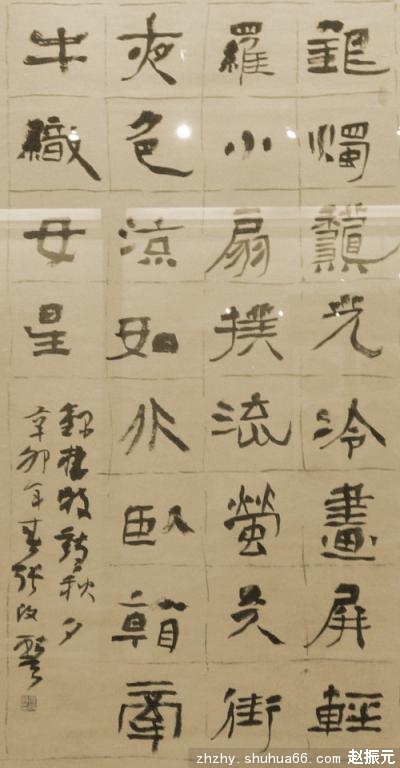 銀燭龝光冷畫屏輕
羅小扇撲流螢天街
夜色涼如水臥看牽
牛織女星
錄杜牧詩秋夕
辛卯年春張改琴
zhzhy.shuhua66.com 赵振元